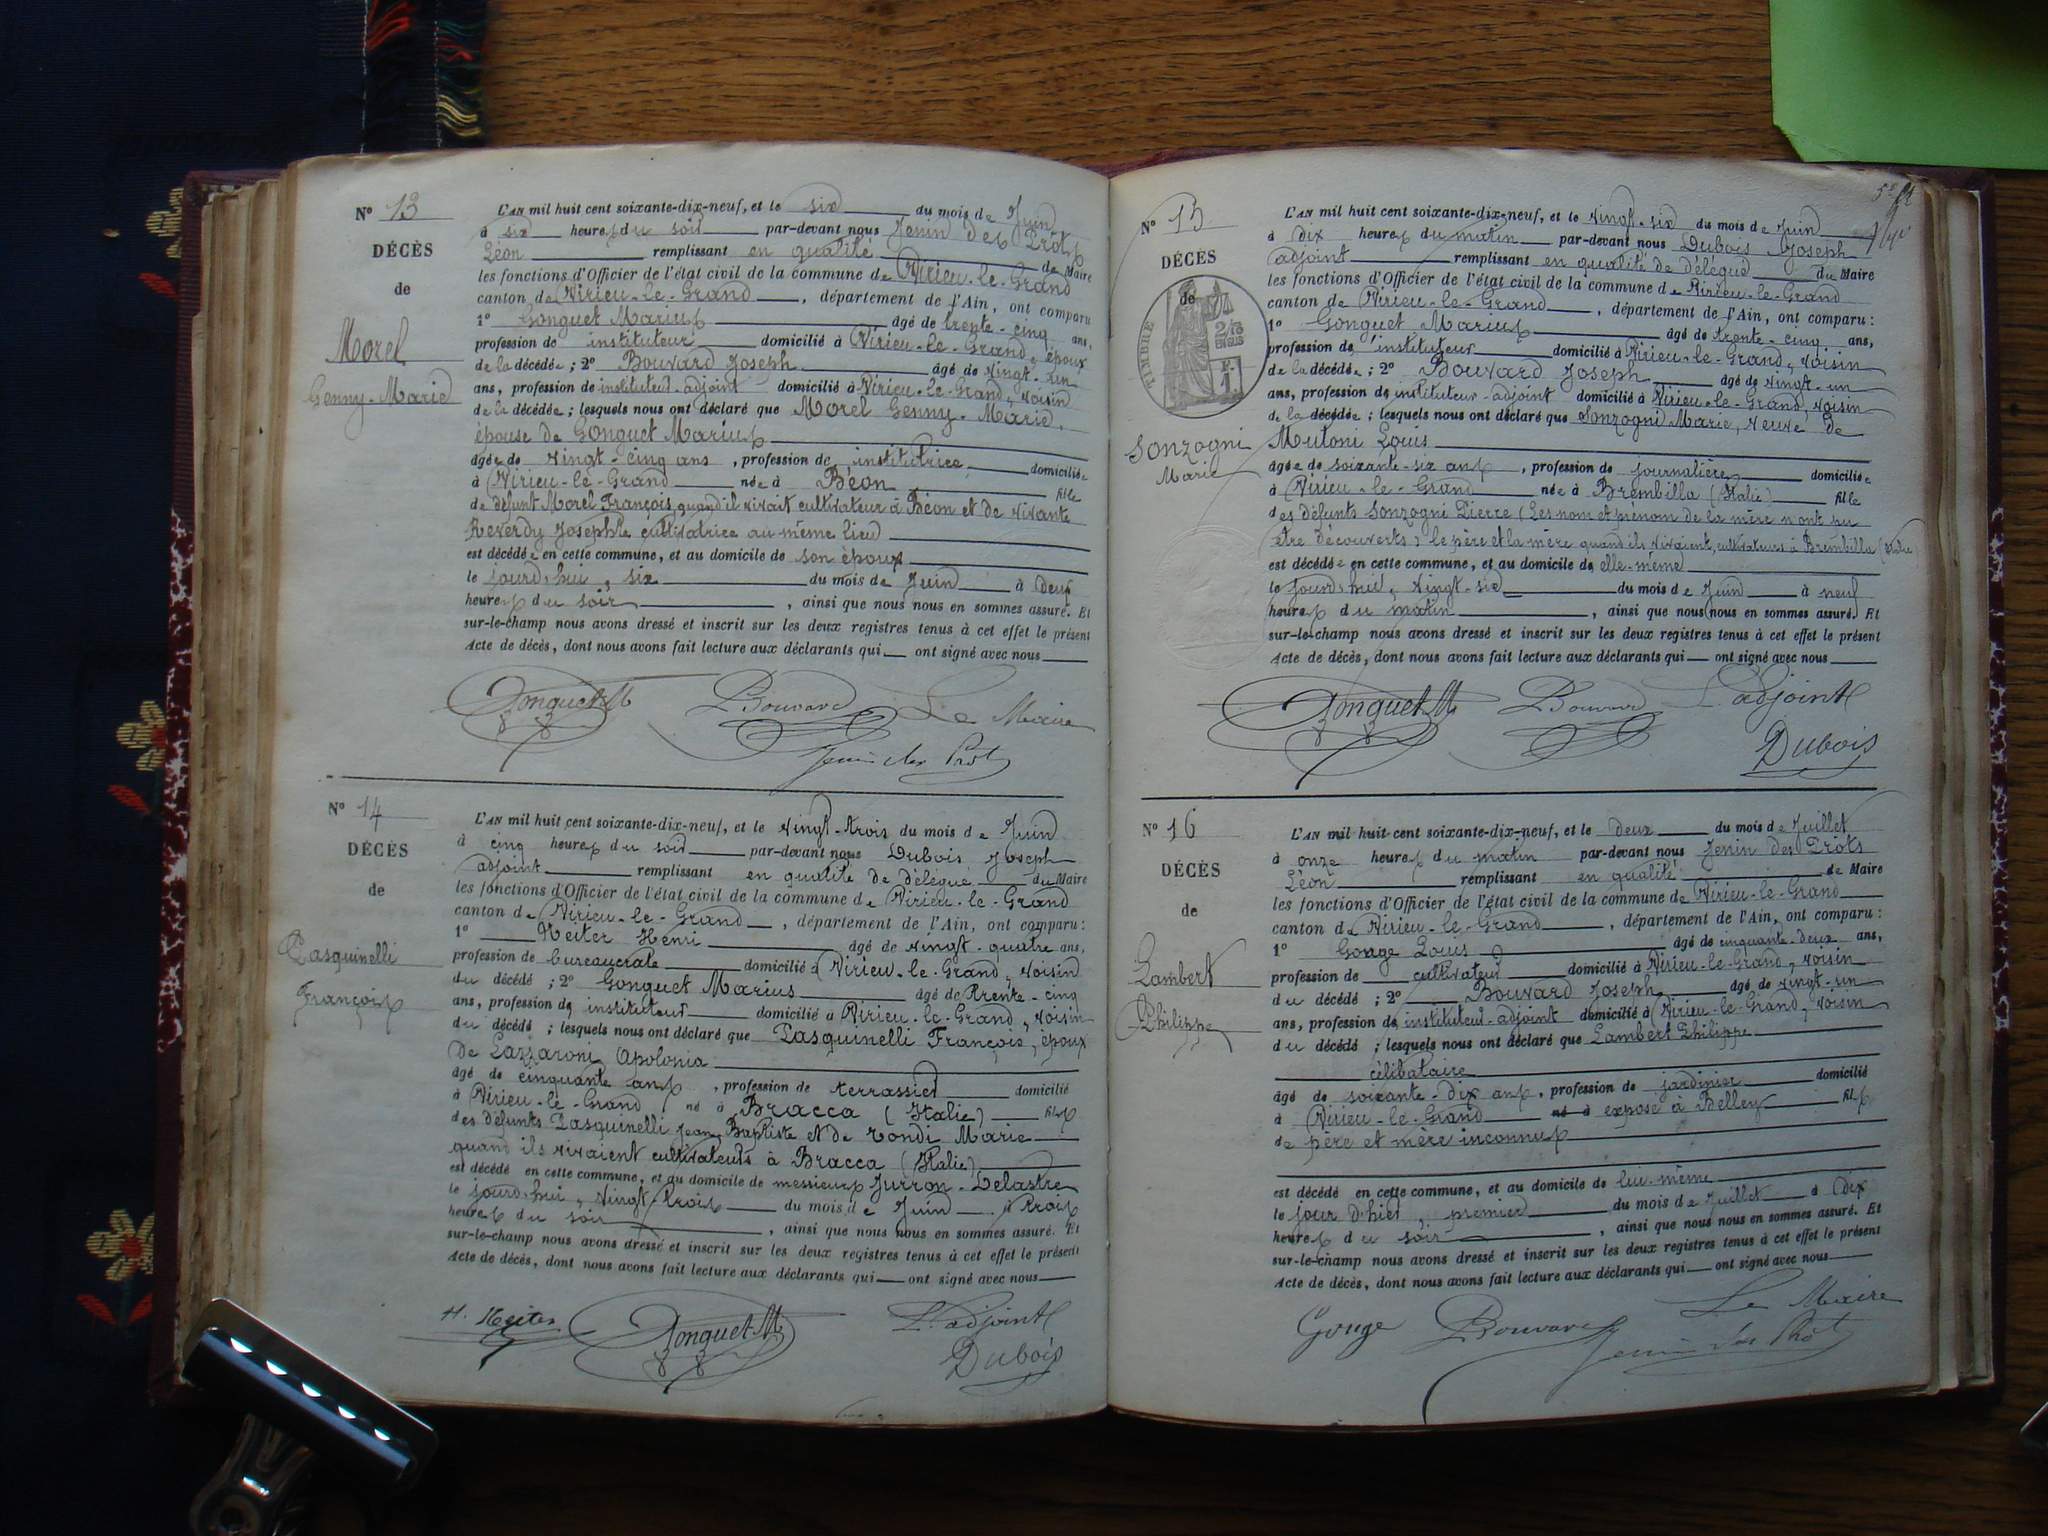 N° 13
DÉCÈS
de
Morel
Genny-Marie
L'AN mil huit cent soixante-dix-neuf, et le six du mois de Juin
à six heures du soir par-devant nous Jenin des Prots
Léon remplissant en qualité de Maire
les fonctions d'Officier de l'état civil de la commune de Virieu-le-Grand
canton de Virieu-le-Grand, département de l'Ain, ont comparu
1° Gonguet Marius âgé de trente-cinq ans,
profession de instituteur domicilié à Virieu-le-Grand, époux
de la décédée; 2° Bouvard Joseph âgé de vingt-un
ans, profession de instituteur-adjoint domicilié à Virieu-le-Grand, voisin
de la décédée; lesquels nous ont déclaré que Morel Genny-Marie,
épouse de Gonguet Marius
âgée de vingt-cinq ans, profession de institutrice domiciliée
à Virieu-le-Grand née à Béon fille
de défunt Morel François, quand il vivait cultivateur à Béon et de vivante
Reverdy Josephte cultivatrice au même lieu
est décédée en cette commune, et au domicile de son époux
le jourd'hui, six du mois de Juin à deux
heures du soir, ainsi que nous nous en sommes assuré. Et
sur-le-champ nous avons dressé et inscrit sur les deux registres tenus à cet effet le présent
Acte de décès, dont nous avons fait lecture aux déclarants qui ont signé avec nous
Gonguet M Bouvard Le Maire
Jenin des Prots
N° 14
DÉCÈS
de
Pasquinelli
François
L'AN mil huit cent soixante-dix-neuf, et le vingt-trois du mois de Juin
à cinq heures du soir par-devant nous Dubois Joseph
adjoint remplissant en qualité de délégué du Maire
les fonctions d'Officier de l'état civil de la commune de Virieu-le-Grand
canton de Virieu-le-Grand, département de l'Ain, ont comparu:
1° Neiter Henri âgé de vingt-quatre ans,
profession de bureaucrate domicilié à Virieu-le-Grand, voisin
du décédé; 2° Gonguet Marius âgé de trente-cinq
ans, profession de instituteur domicilié à Virieu-le-Grand, voisin
du décédé; lesquels nous ont déclaré que Pasquinelli François, époux
de Lazzaroni Apolonia
âgé de cinquante ans, profession de terrassier domicilié
à Virieu-le-Grand, né à Bracca (Italie) fils
des défunts Pasquinelli Jean-Baptiste et de Rondi Marie
quand ils vivaient cultivateurs à Bracca (Italie)
est décédé en cette commune, et au domicile de messieurs Jurron-Delastre
le jourd'hui, vingt-trois du mois de Juin à trois
heures du soir, ainsi que nous nous en sommes assuré. Et
sur-le-champ nous avons dressé et inscrit sur les deux registres tenus à cet effet le présent
Acte de décès, dont nous avons fait lecture aux déclarants qui ont signé avec nous
H. Neiter Gonguet M L'adjoint
Dubois
N° 15
DÉCÈS
de
TIMBRE
2/10
EN SUS
Sonzogni
Marie
L'AN mil huit cent soixante-dix-neuf, et le vingt-six du mois de Juin
à dix heures du matin par-devant nous Dubois Joseph
adjoint remplissant en qualité de délégué du Maire
les fonctions d'Officier de l'état civil de la commune de Virieu-le-Grand
canton de Virieu-le-Grand, département de l'Ain, ont comparu:
1° Gonguet Marius âgé de trente-cinq ans,
profession de instituteur domicilié à Virieu-le-Grand, voisin
de la décédée; 2° Bouvard Joseph âgé de vingt-un
ans, profession de instituteur-adjoint domicilié à Virieu-le-Grand, voisin
de la décédée; lesquels nous ont déclaré que Sonzogni Marie, veuve de
Mutoni Louis
âgée de soixante-six ans, profession de journalière domiciliée
à Virieu-le-Grand née à Brembilla (Italie) fille
des défunts Sonzogni Pierre (Les nom et prénom de la mère n'ont pu
être découverts) le père et la mère quand ils vivaient, cultivateurs à Brembilla (Italie)
est décédée en cette commune, et au domicile de elle-même
le jourd'hui, vingt-six du mois de Juin à neuf
heures du matin, ainsi que nous nous en sommes assuré. Et
sur-le-champ nous avons dressé et inscrit sur les deux registres tenus à cet effet le présent
Acte de décès, dont nous avons fait lecture aux déclarants qui ont signé avec nous
Gonguet M Bouvard L'adjoint
Dubois
N° 16
DÉCÈS
de
Lambert
Philippe
L'AN mil huit cent soixante-dix-neuf, et le deux du mois de Juillet
à onze heures du matin par-devant nous Jenin des Prots
Léon remplissant en qualité de Maire
les fonctions d'Officier de l'état civil de la commune de Virieu-le-Grand
canton de Virieu-le-Grand, département de l'Ain, ont comparu:
1° Gouge Louis âgé de cinquante-deux ans,
profession de cultivateur domicilié à Virieu-le-Grand, voisin
du décédé; 2° Bouvard Joseph âgé de vingt-un
ans, profession de instituteur-adjoint domicilié à Virieu-le-Grand, voisin
du décédé; lesquels nous ont déclaré que Lambert Philippe
célibataire
âgé de soixante-dix ans, profession de jardinier domicilié
à Virieu-le-Grand né à exposé à Belley fils
de père et mère inconnus
est décédé en cette commune, et au domicile de lui-même
le jour d'hier, premier du mois de Juillet à dix
heures du soir, ainsi que nous nous en sommes assuré. Et
sur-le-champ nous avons dressé et inscrit sur les deux registres tenus à cet effet le présent
Acte de décès, dont nous avons fait lecture aux déclarants qui ont signé avec nous
Gouge Bouvard Le Maire
Jenin des Prots